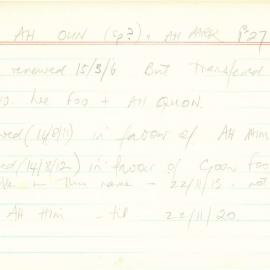 AH OUN (sp?) + AH MARK P27
renewed 15/3/6 But Transferred
Lee Foo + AH QUON.
(14/8/11) in favour of AH HIM
(14/8/12) in favour of Goon Foo
This name - 22/11/15 - not
AH Him - til 22/11/20.